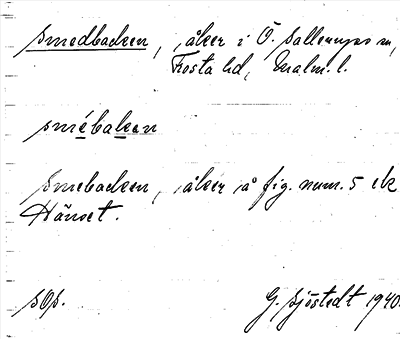 Smedbacken, åker i Ö. Sallerups sn,
Frosta hd, Malm. l.
smébaken
Smebacken, åker å fig. num. 5
sOs.
G. Sjöstedt 1940.